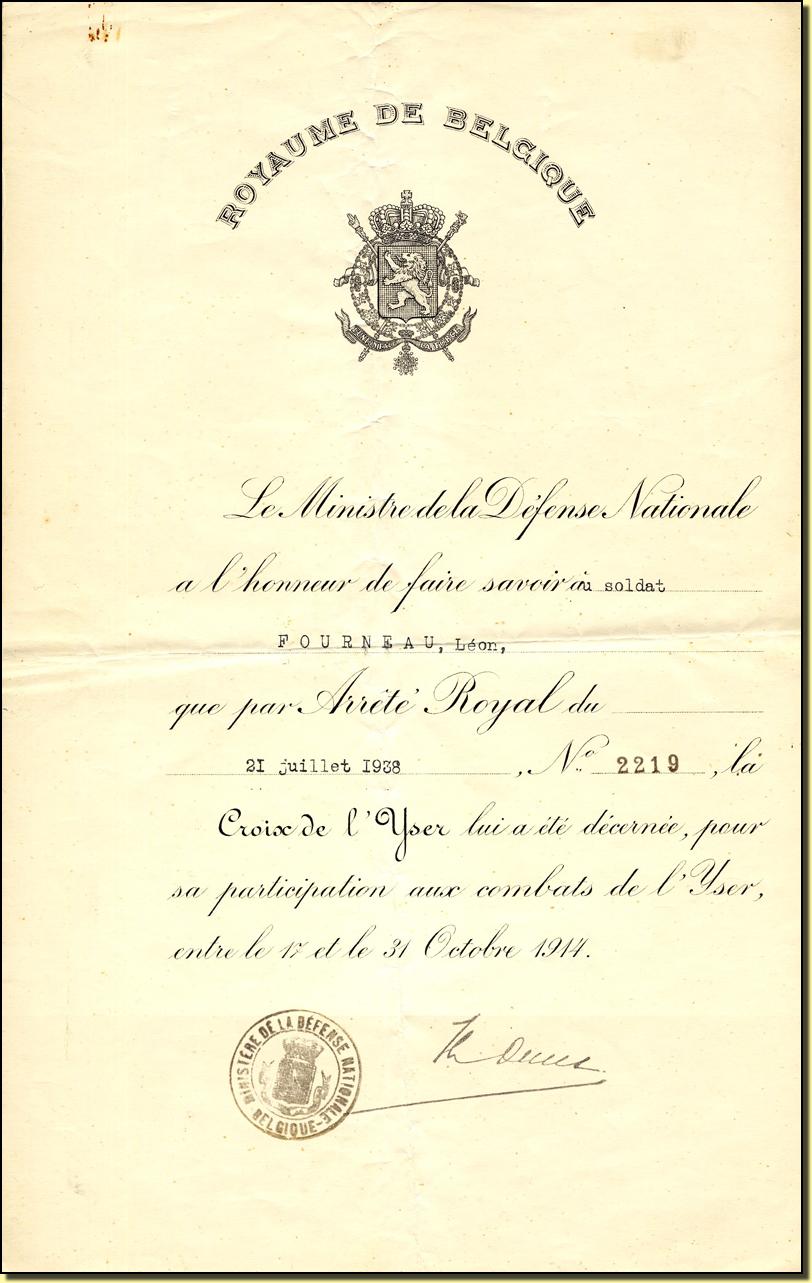 ROYAUME DE BELGIQUE
Le Ministre de la Défense Nationale
a l'honneur de faire savoir au soldat
FOURNEAU, Léon,
que par Arrêté Royal du
21 juillet 1938, No 2219, la
Croix de l'Yser lui a été décernée, pour
sa participation aux combats de l'Yser,
entre le 17 et le 31 Octobre 1914.
MINISTÈRE DE LA DÉFENSE NATIONALE
BELGIQUE